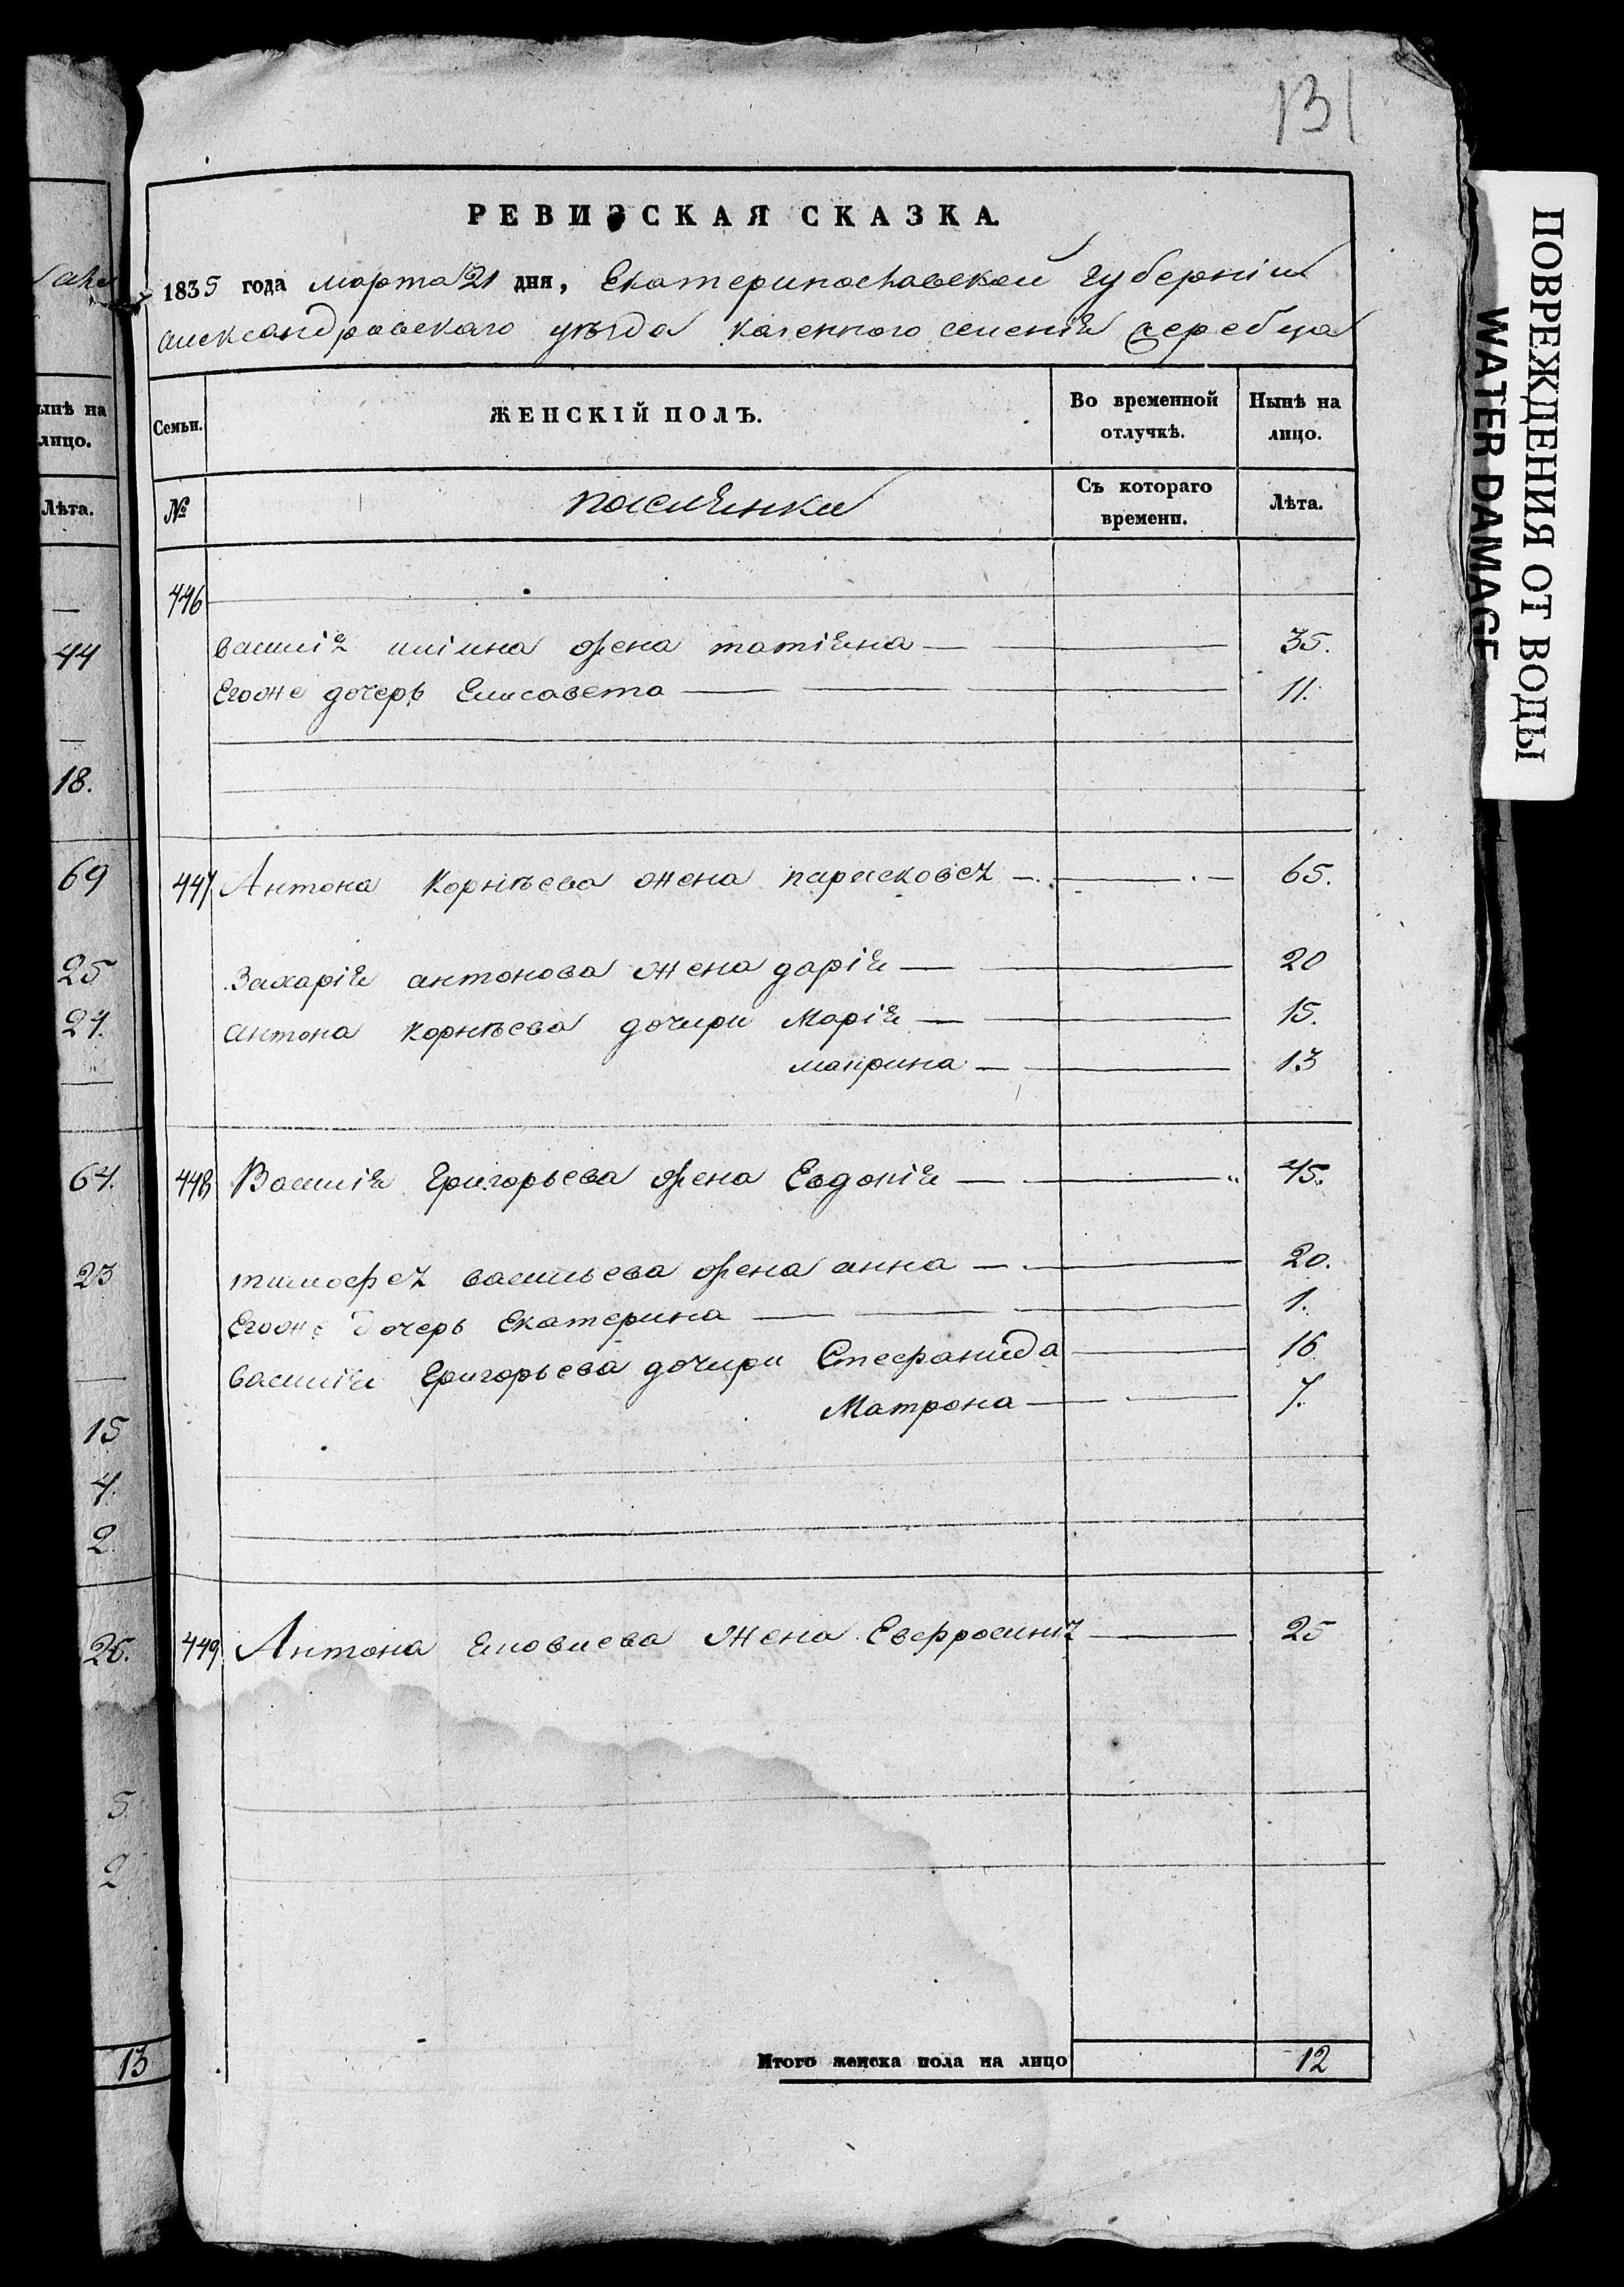 131
РЕВИЗСКАЯ СКАЗКА.
1835 года марта 21 дня, Екатеринославской губерніи
александровскаго уѣзда казенного селенія жеребца
Семьи.
ЖЕНСКІЙ ПОЛЪ.
Во временной отлучкѣ.
Нынѣ на лицо.
№
поселянки
Съ котораго времени.
Лѣта.
446
василія жена татіяна 35.
Егоже дочерь Елисавета 11.
447 Антона Корнѣева жена парасковея 65.
Захарія антонова жена дарія 20
антона корнѣева дочери Марія 15.
маврина 13
448 Василія Григорьева жена Евдокія 45.
тимофея васильева жена анна 20.
Егоже дочерь Екатерина 1.
василія Григорьева дочери Стефанида 16
Матрона 7.
449 Антона жена Евфросинія 25
Итого женска пола на лицо 12
ынѣ на
лицо.
Лѣта.
44
18.
69
25
21.
64.
23
15
4.
2.
26.
5.
2
13
ПОВРЕЖДЕНИЯ ОТ ВОДЫ
WATER DAMAGE